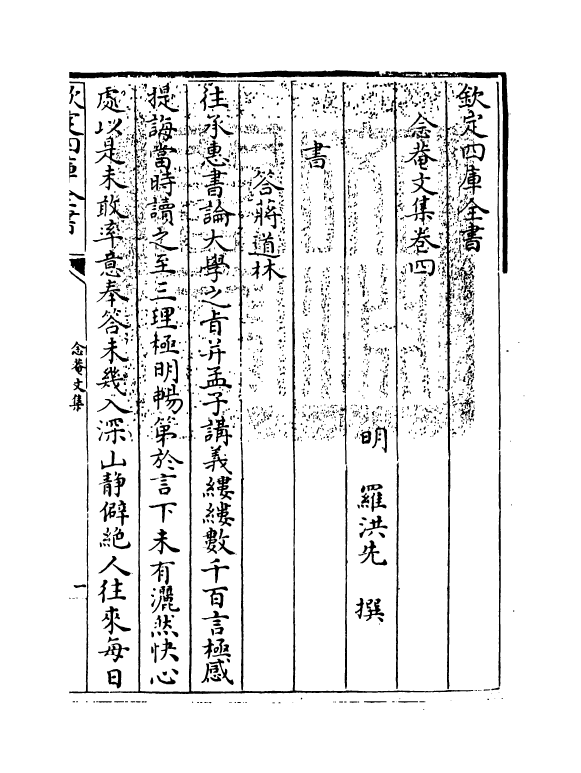 欽定四庫全書
念菴文集卷四
明　羅洪先　撰
書
答蔣道林
往承惠書論大學之旨并孟子講義縷縷數千百言極感
提誨當時讀之至三理極明暢第於言下未有灑然快心
處以是未敢率意奉答未幾入深山静僻絶人往來每日
欽定四庫全書
念菴文集
一